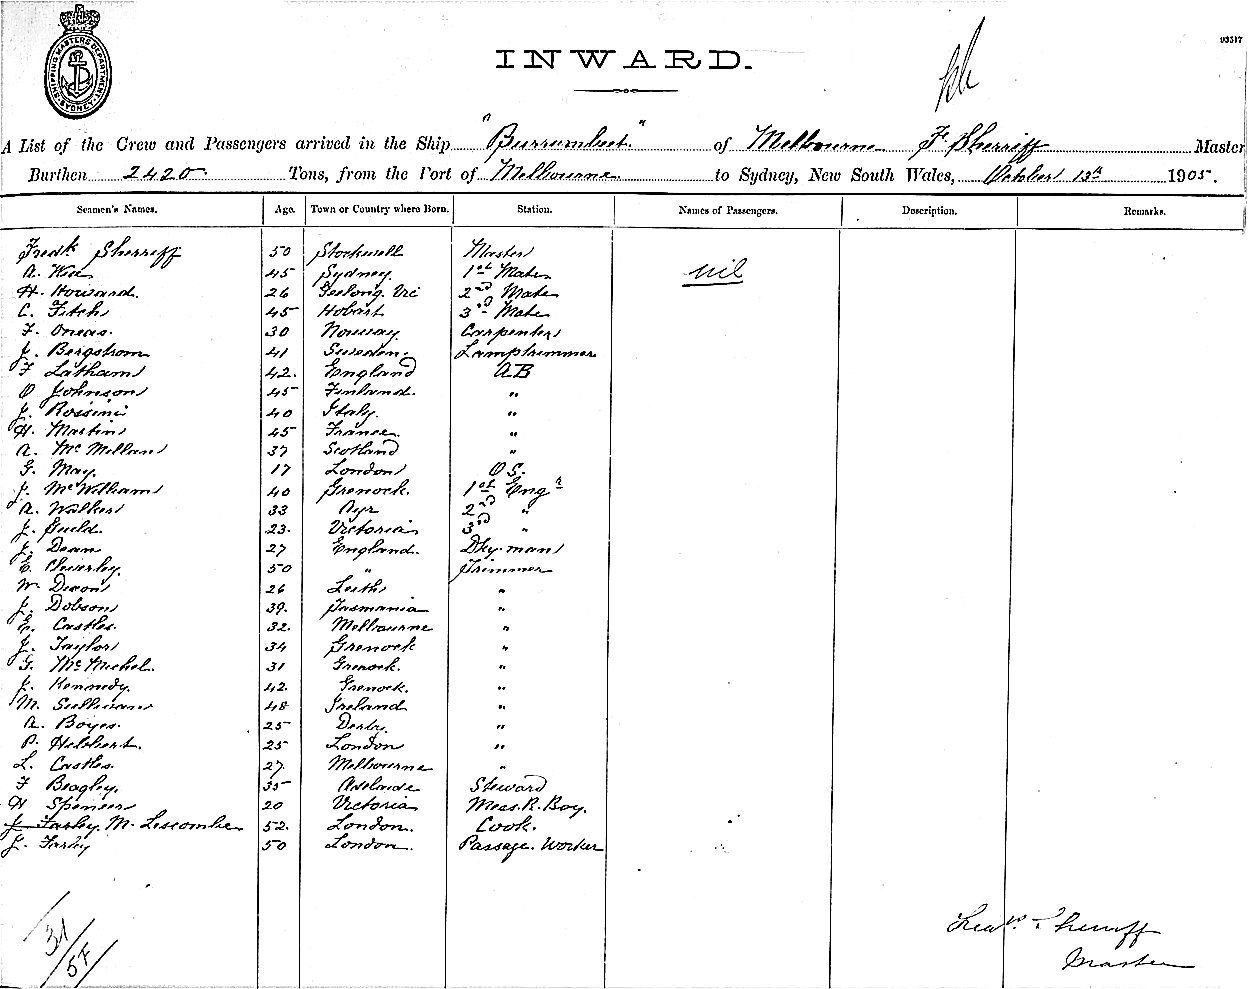 SHIPPING MASTERS DEPARTMENT SYDNEY
93517
INWARD.
A List of the Crew and Passengers arrived in the Ship "Burrumbeet" of Melbourne F. Sherriff Master
Burthen 2420 Tons, from the Port of Melbourne to Sydney, New South Wales, October 13th 1905.
Seamen's Names. Age. Town or Country where Born. Station. Names of Passengers. Description. Remarks.
Fredk Sherriff 50 Stockwell Master
A. 45 Sydney. 1st Mate nil
H. Howard. 26 Geelong. Vic 2nd Mate
C. Fitch 45 Hobart 3rd Mate
F. 30 Norway. Carpenter
J. Bergstrom 41 Sweden. Lamptrimmer
F Latham 42. England AB
O Johnson 45 Finland. "
J. Rossini 40 Italy. "
H. Martin 45 France. "
A. McMillan 37 Scotland "
G. May. 17 London OS.
J. McWilliam 40 Grenock. 1st Engr
A. Walker 33 Ayr 2nd "
J. Guild. 23. Victoria 3rd "
J. Dean 27 England. Dky. man
E. Cleverley. 50 " Trimmer
W. Dixon 26 Leith "
J. Dobson 39. Tasmania "
E. Castles. 32. Melbourne "
J. Taylor 34 Grenock "
G. McMichel. 31 Grenock. "
J. Kennedy. 42. Grenock. "
M. Sullivan 48 Ireland "
A. Boyes. 25 Derby. "
P. 25 London "
L. Castles. 27. Melbourne "
F Beagley. 35 Adelaide Steward
H Spencer 20 Victoria Mess. R. Boy.
J. Farley. M. Lescombe 52. London. Cook.
J. Farley 50 London. Passage. Worker
31/57
Sherriff
Master